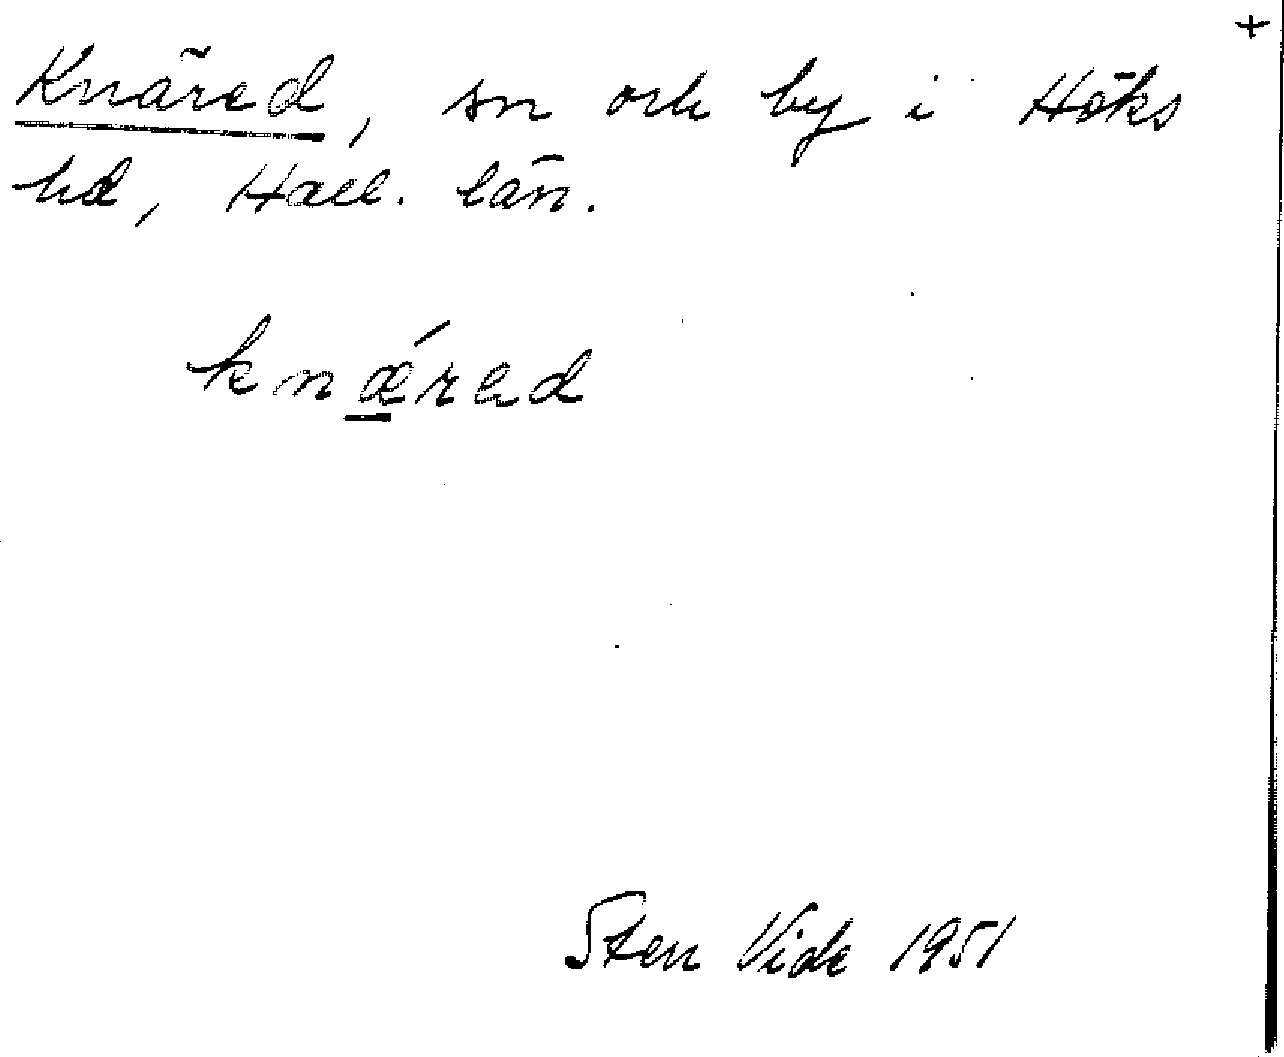 +
Knäred, sn och by i Höks
hd, Hall. län.
knǽred
Sten Vide 1951